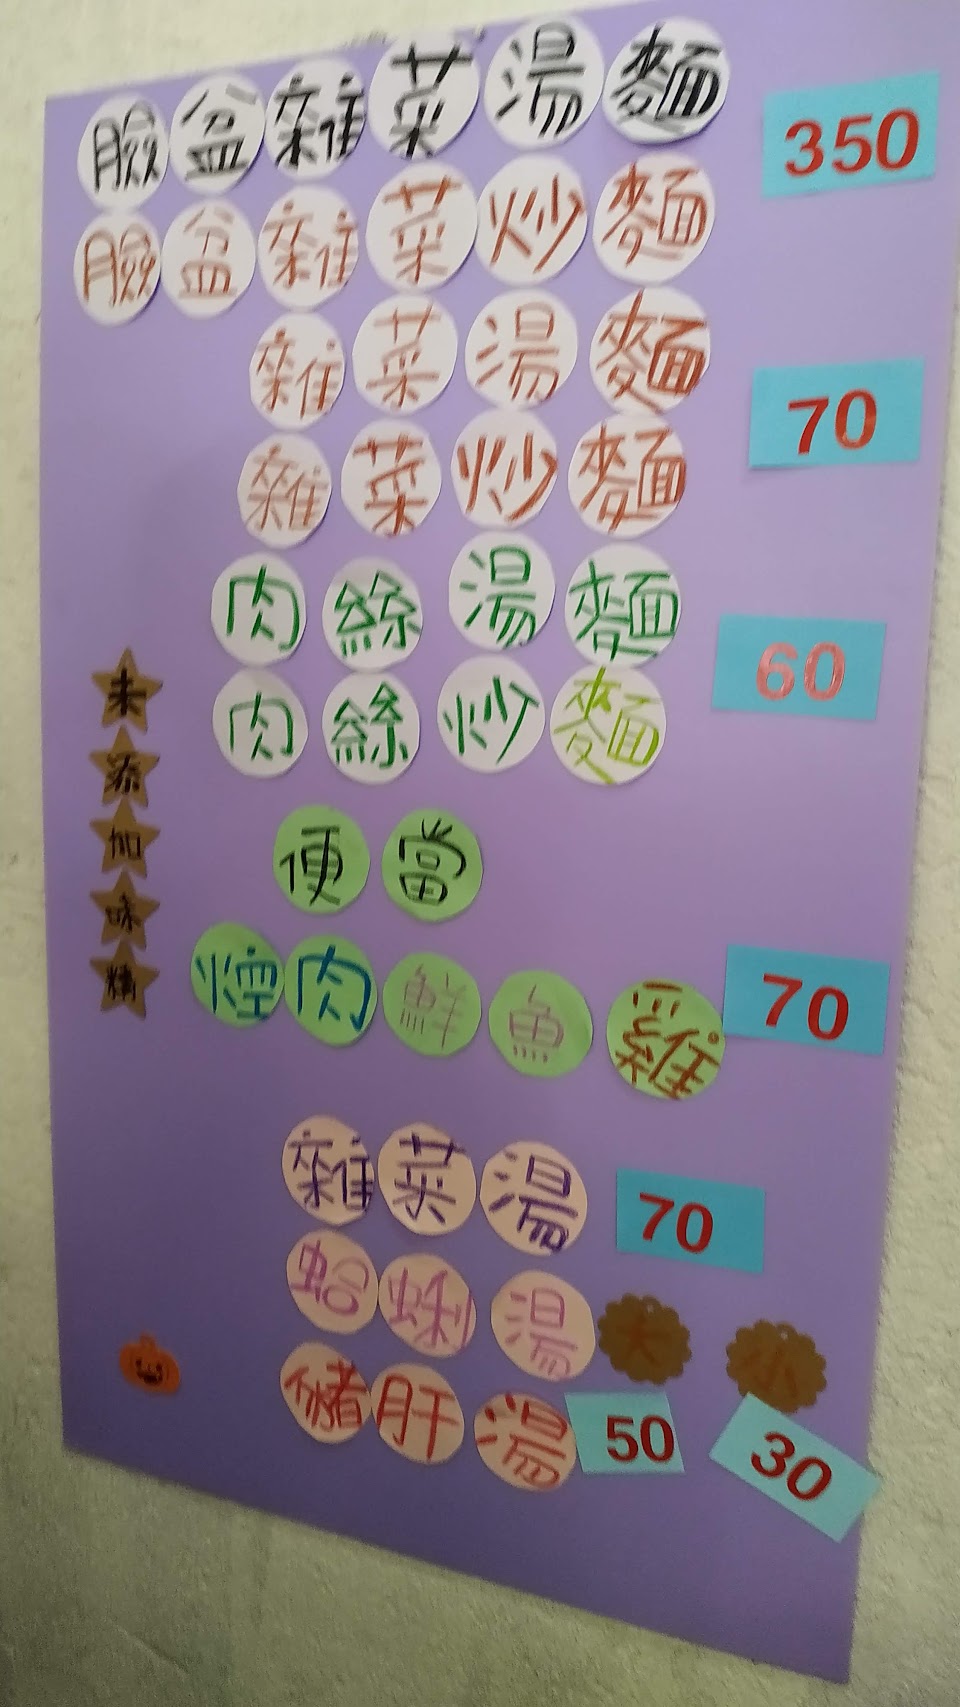 臉盆雜菜湯麵 350
臉盆雜菜炒麵
雜菜湯麵 70
雜菜炒麵
肉絲湯麵 60
肉絲炒麵
便當
焢肉 鮮魚 雞 70
雜菜湯 70
蛤蜊湯 大 小
豬肝湯 50 30
未添加味精